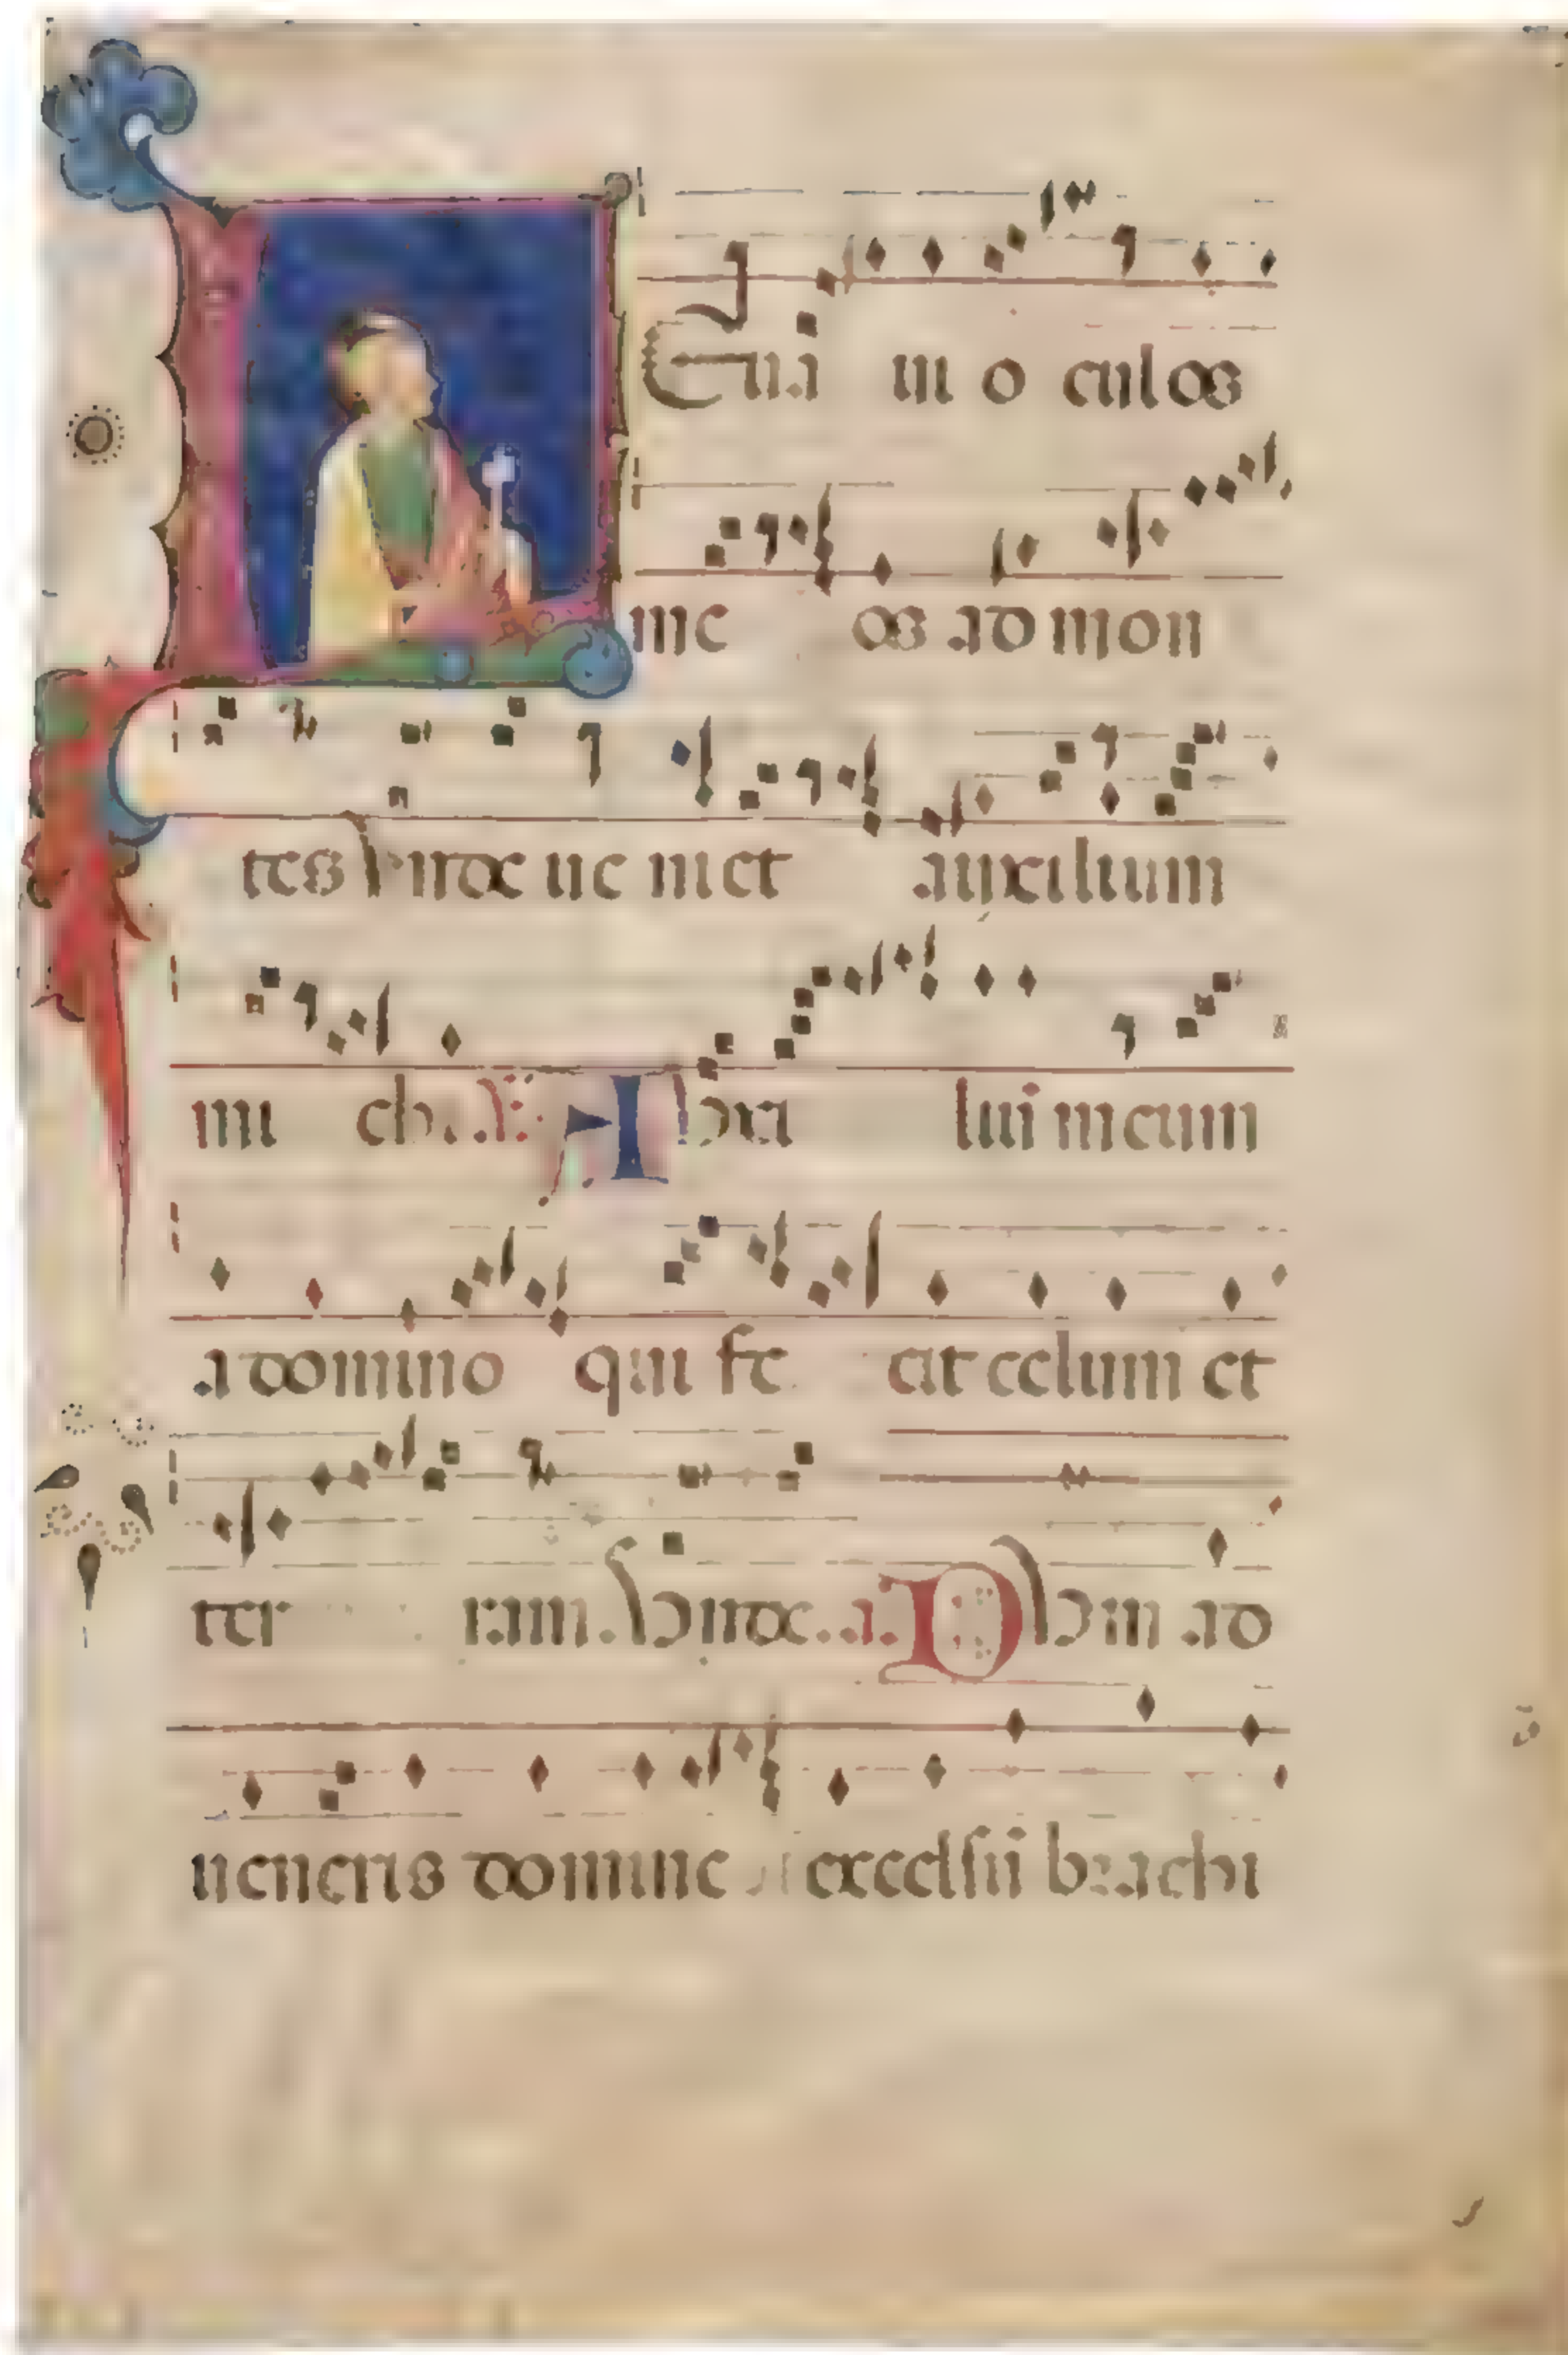 Eua ui o culos
me os ad mon
tes Unde ue niet auxilium
mi chi. V. Auxi lium meum
a domino qui fe cit celum et
ter ram. Unde. a. Dum ad
ueneris domine excelsu brachi